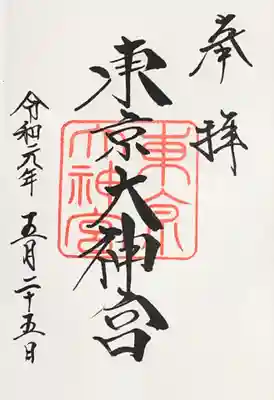 奉拝
東京大神宮
東京大神宮
令和元年 五月二十五日